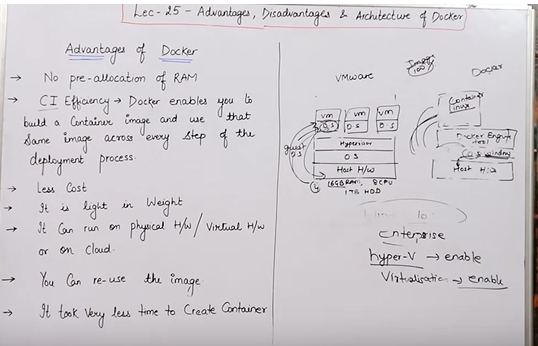 Lec-25 - Advantages, Disadvantages & Architecture of Docker
Advantages of Docker
→ No pre-allocation of RAM
→ CI Efficiency → Docker enables you to
build a Container image and use that
same image across every step of the
deployment process.
→ Less Cost
→ It is light in Weight
→ It Can run on physical H/w / Virtual H/w
or on Cloud.
→ You Can re-use the image
→ It took Very less time to Create Container
VMware
VM VM VM
O.S O.S O.S
guest
O.S
Hypervisor
O.S
Host H/w
16GB RAM, 8 CPU
1TB HDD
Docker
Container
Linux
Docker Engine
O.S
Host H/w
Enterprise
hyper-V → enable
Virtualisation → enable